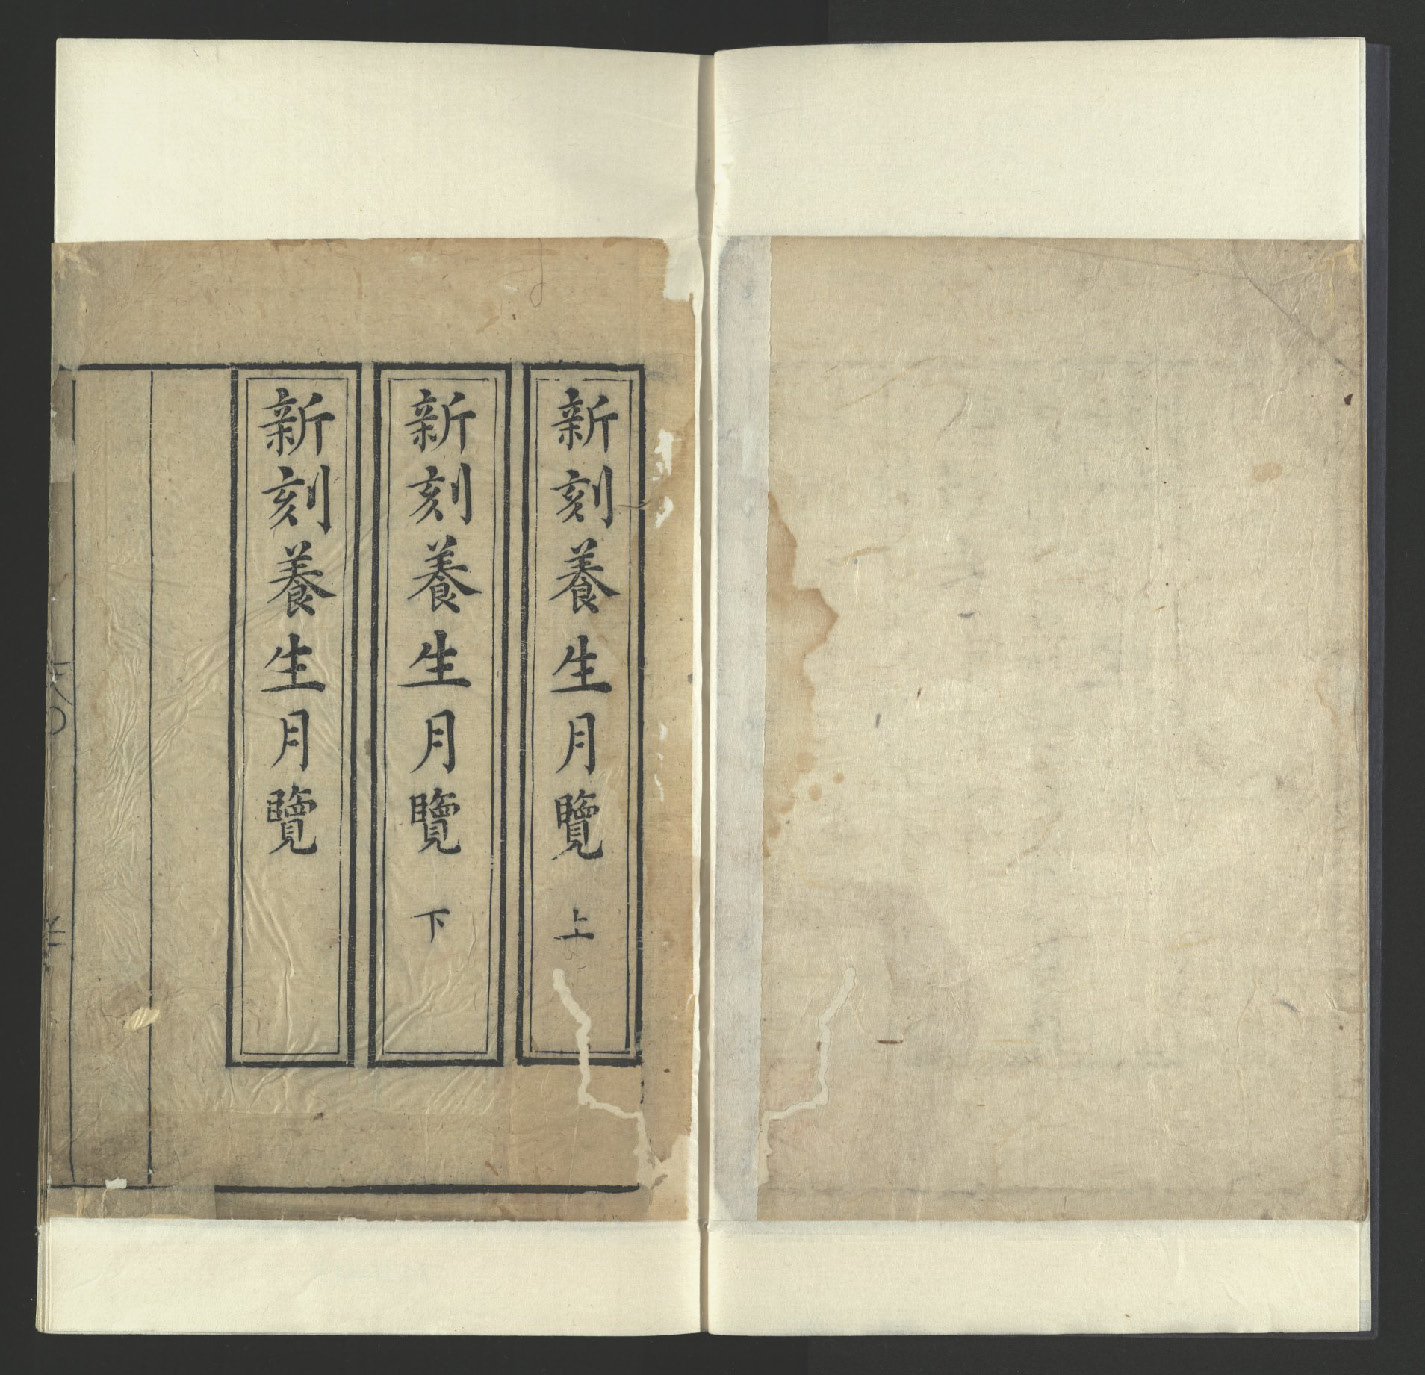 新刻養生月覽 上
新刻養生月覽 下
新刻養生月覽